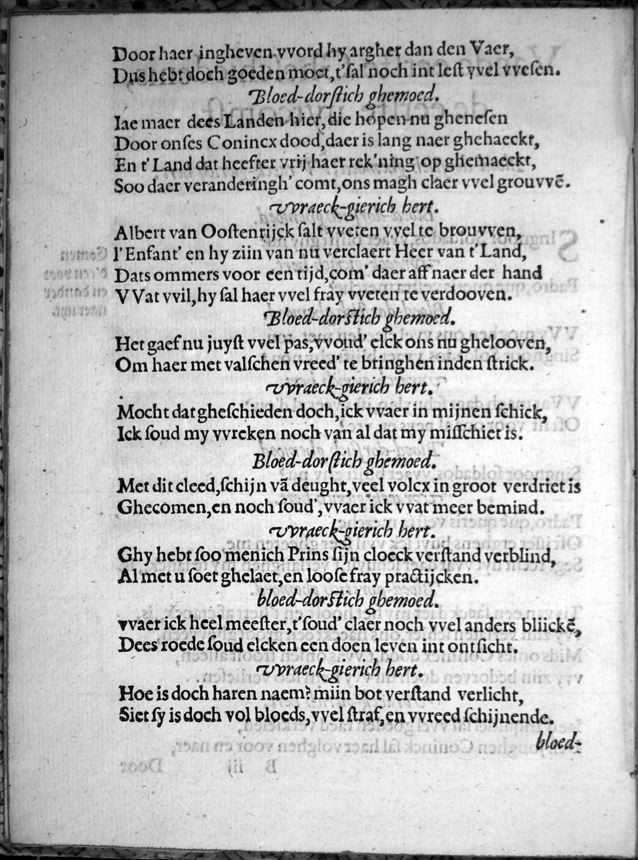 Door haer ingheven vvord hy argher dan den Vaer,
Dus hebt doch goeden moet, t'ſal noch int leſt yvel vveſen.
Bloed-dorſtich ghemoed.
Iae maer dees Landen hier, die hopen nu gheneſen
Door onſes Conincx dood, daer is lang naer ghehaeckt,
En t'Land dat heefter vrij haer rek'ning op ghemaeckt,
Soo daer veranderingh' comt, ons magh claer vvel grouvvē.
vvraeck-gierich hert.
Albert van Ooſtenrijck ſalt vveten vvel te brouvven,
l'Enfant' en hy ziin van nu verclaert Heer van t'Land,
Dats ommers voor een tijd, com' daer aff naer der hand
VVat vvil, hy ſal haer vvel fray vveten te verdooven.
Bloed-dorſtich ghemoed.
Het gaef nu juyſt vvel pas, vvoud' elck ons nu ghelooven,
Om haer met valſchen vreed' te bringhen inden ſtrick.
vvraeck-gierich hert.
Mocht dat gheſchieden doch, ick vvaer in mijnen ſchick,
Ick ſoud my vvreken noch van al dat my miſſchiet is.
Bloed-dorſtich ghemoed.
Met dit cleed, ſchijn vā deught, veel volcx in groot verdriet is
Ghecomen, en noch ſoud', vvaer ick vvat meer bemind.
vvraeck-gierich hert.
Ghy hebt ſoo menich Prins ſijn cloeck verſtand verblind,
Al met u ſoet ghelaet, en looſe fray practijcken.
bloed-dorſtich ghemoed.
vvaer ick heel meeſter, t'ſoud' claer noch vvel anders bliickē,
Dees roede ſoud elcken een doen leven int ontſicht.
vvraeck-gierich hert.
Hoe is doch haren naem? miin bot verſtand verlicht,
Siet ſy is doch vol bloeds, vvel ſtraf, en vvreed ſchijnende.
bloed-